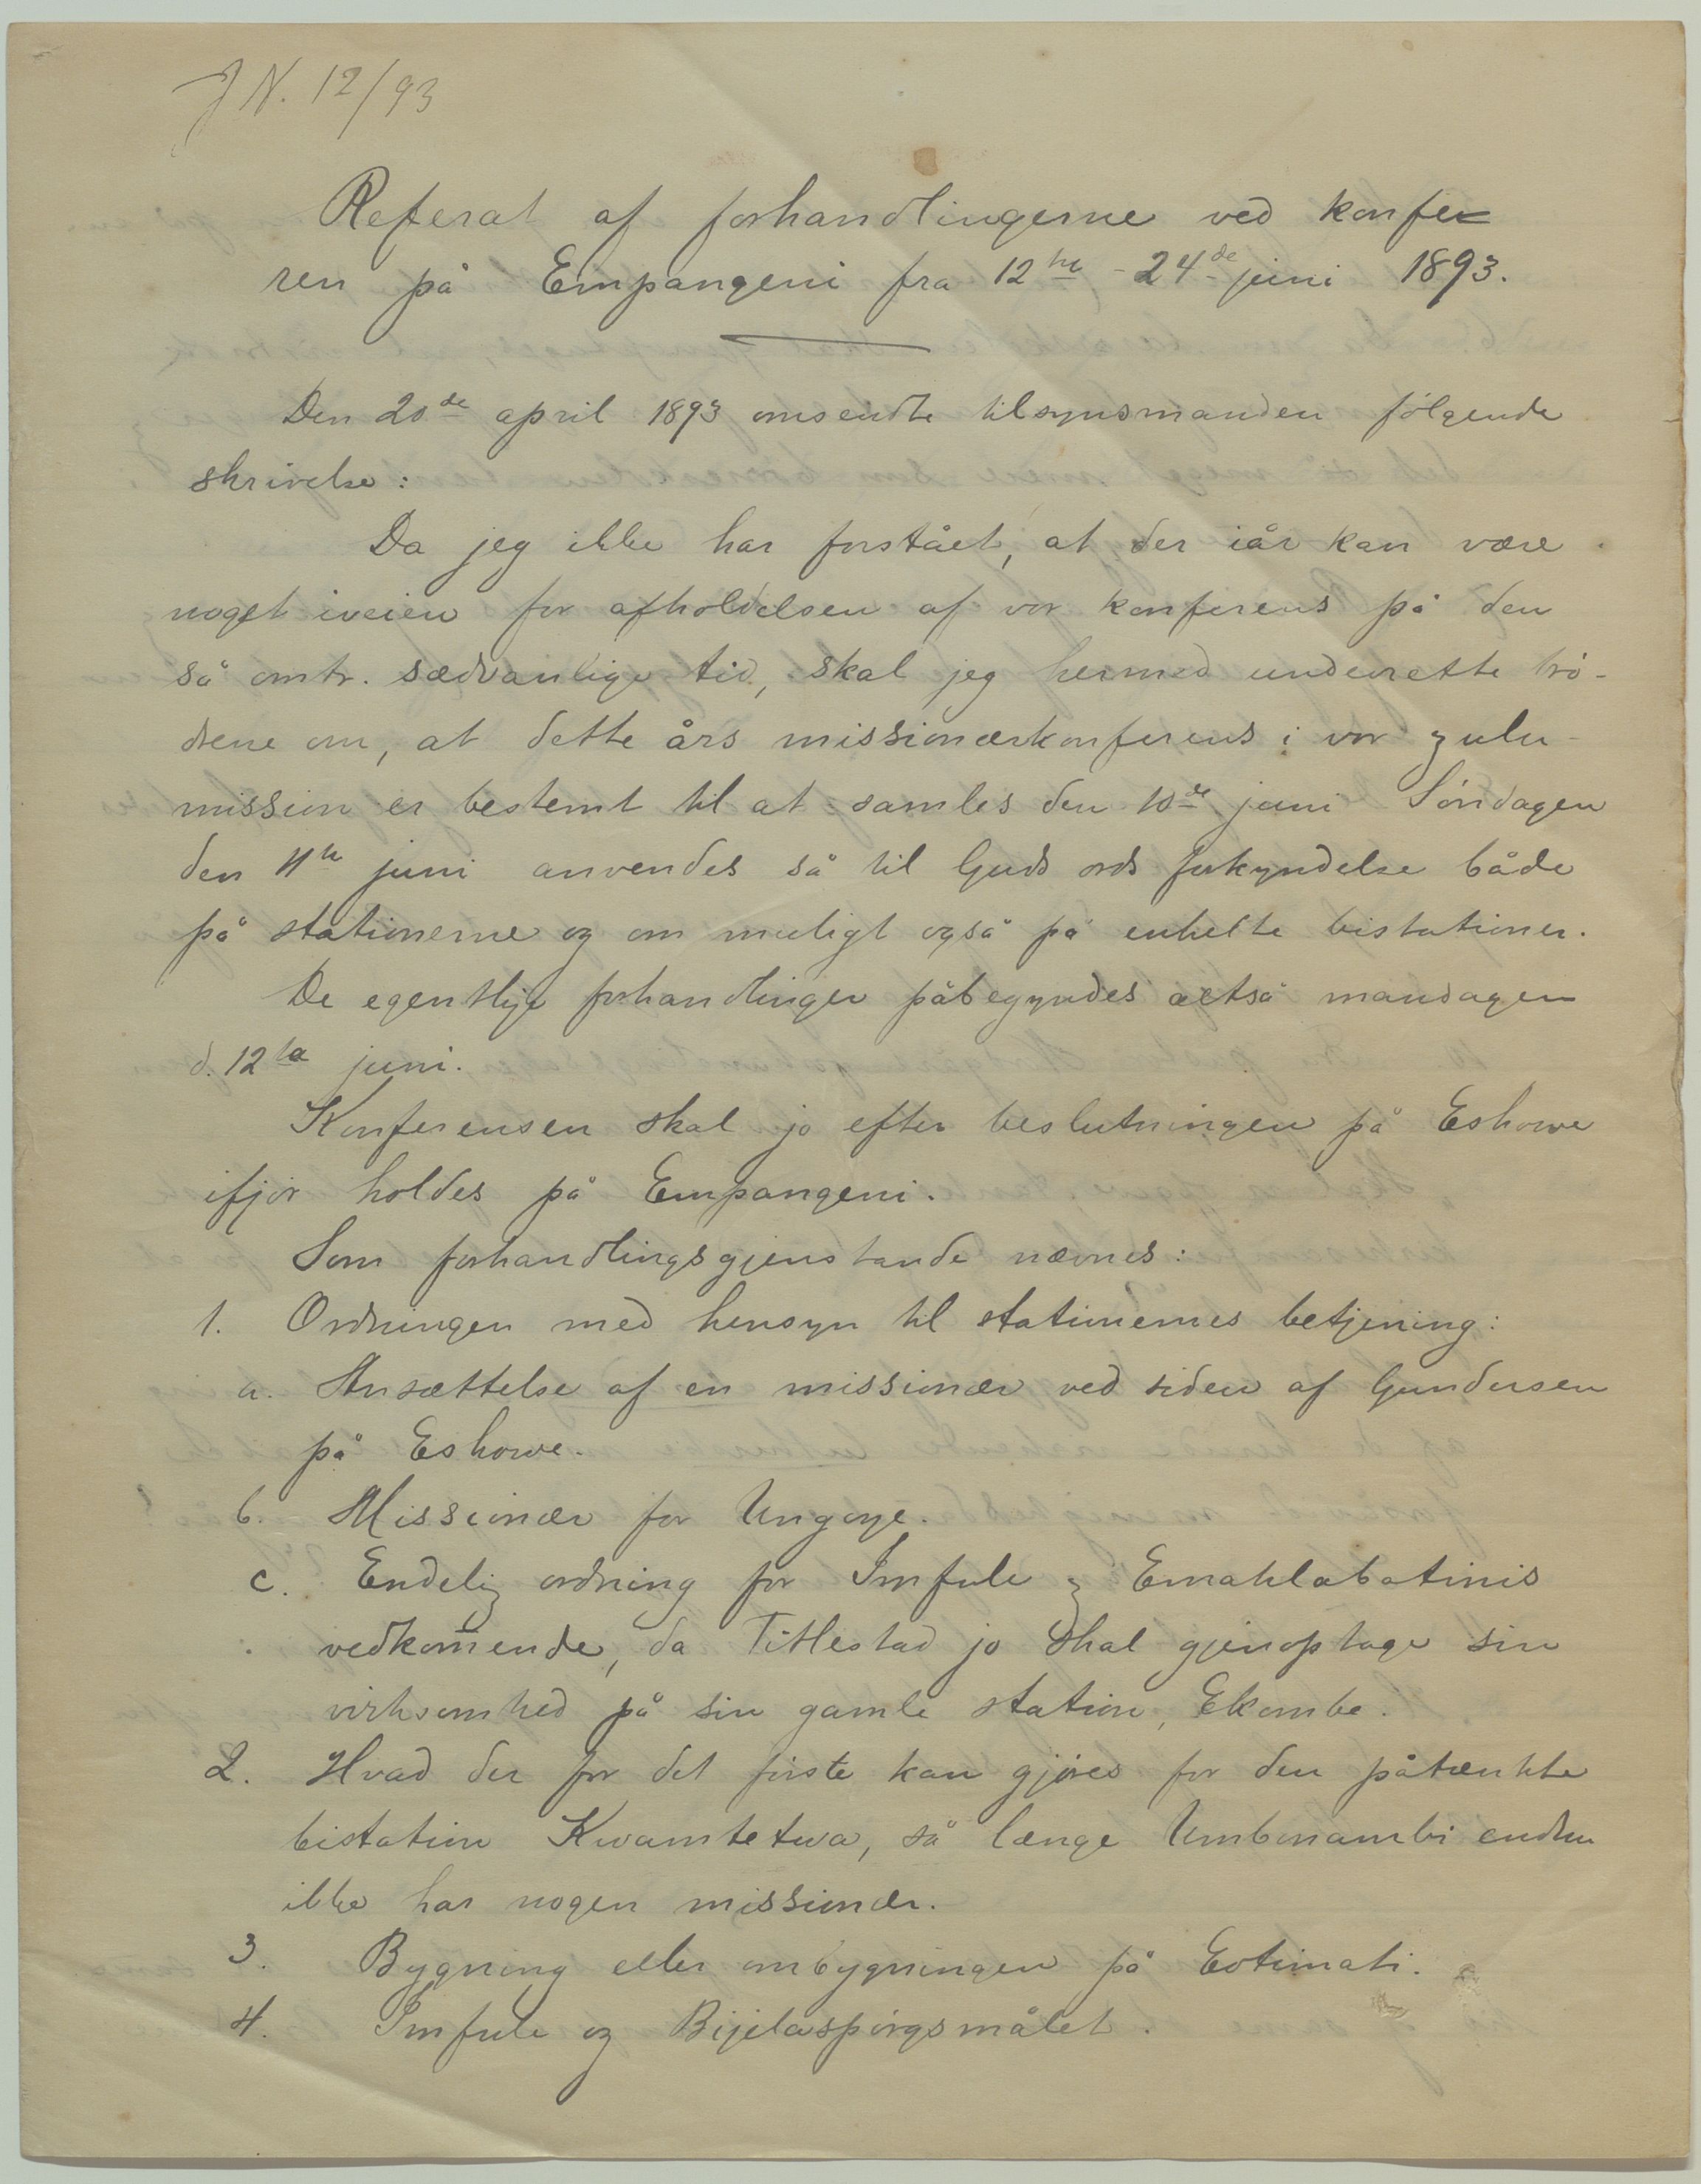 J N. 12/93
Referat af forhandlingerne ved konfe-
ren på Empangeni fra 12te - 24de juni 1893.
Den 20de april 1893 omsendte tilsynsmanden følgende
skrivelse:
Da jeg ikke har forstået, at der iår kan være
noget iveien for afholdelsen af vor konferens på den
så omtr. sædvanlige tid, skal jeg hermed underrette brø-
drene om, at dette års missionærkonferens i vor zulu-
mission er bestemt til at samles den 10de juni Søndagen
den 11te juni anvendes så til Guds ords forkyndelse både
på stationerne og om muligt også på enkelte bistationer.
De egentlige forhandlinger påbegyndes altså mandagen
d. 12te juni.
Konferensen skal jo efter beslutningen på Eshowe
ifjor holdes på Empangeni.
Som forhandlingsgjenstande nævnes:
1. Ordningen med hensyn til stationernes betjening:
a. Ansættelse af en missionær ved siden af Gundersen
på Eshowe.
b. Missionær for Ungoye.
c. Endelig ordning for Imfule og Emahlabatinis
vedkom̅ende, da Titlestad jo skal gjenoptage sin
virksomhed på sin gamle station, Ekombe.
2. Hvad der for det første kan gjøres for den påtænkte
bistation Kwamtetwa, så længe Umbonambi endnu
ikke har nogen missionær.
3. Bygning eller ombygningen på Eotimati.
4. Imfule og Bijelaspørgsmålet.